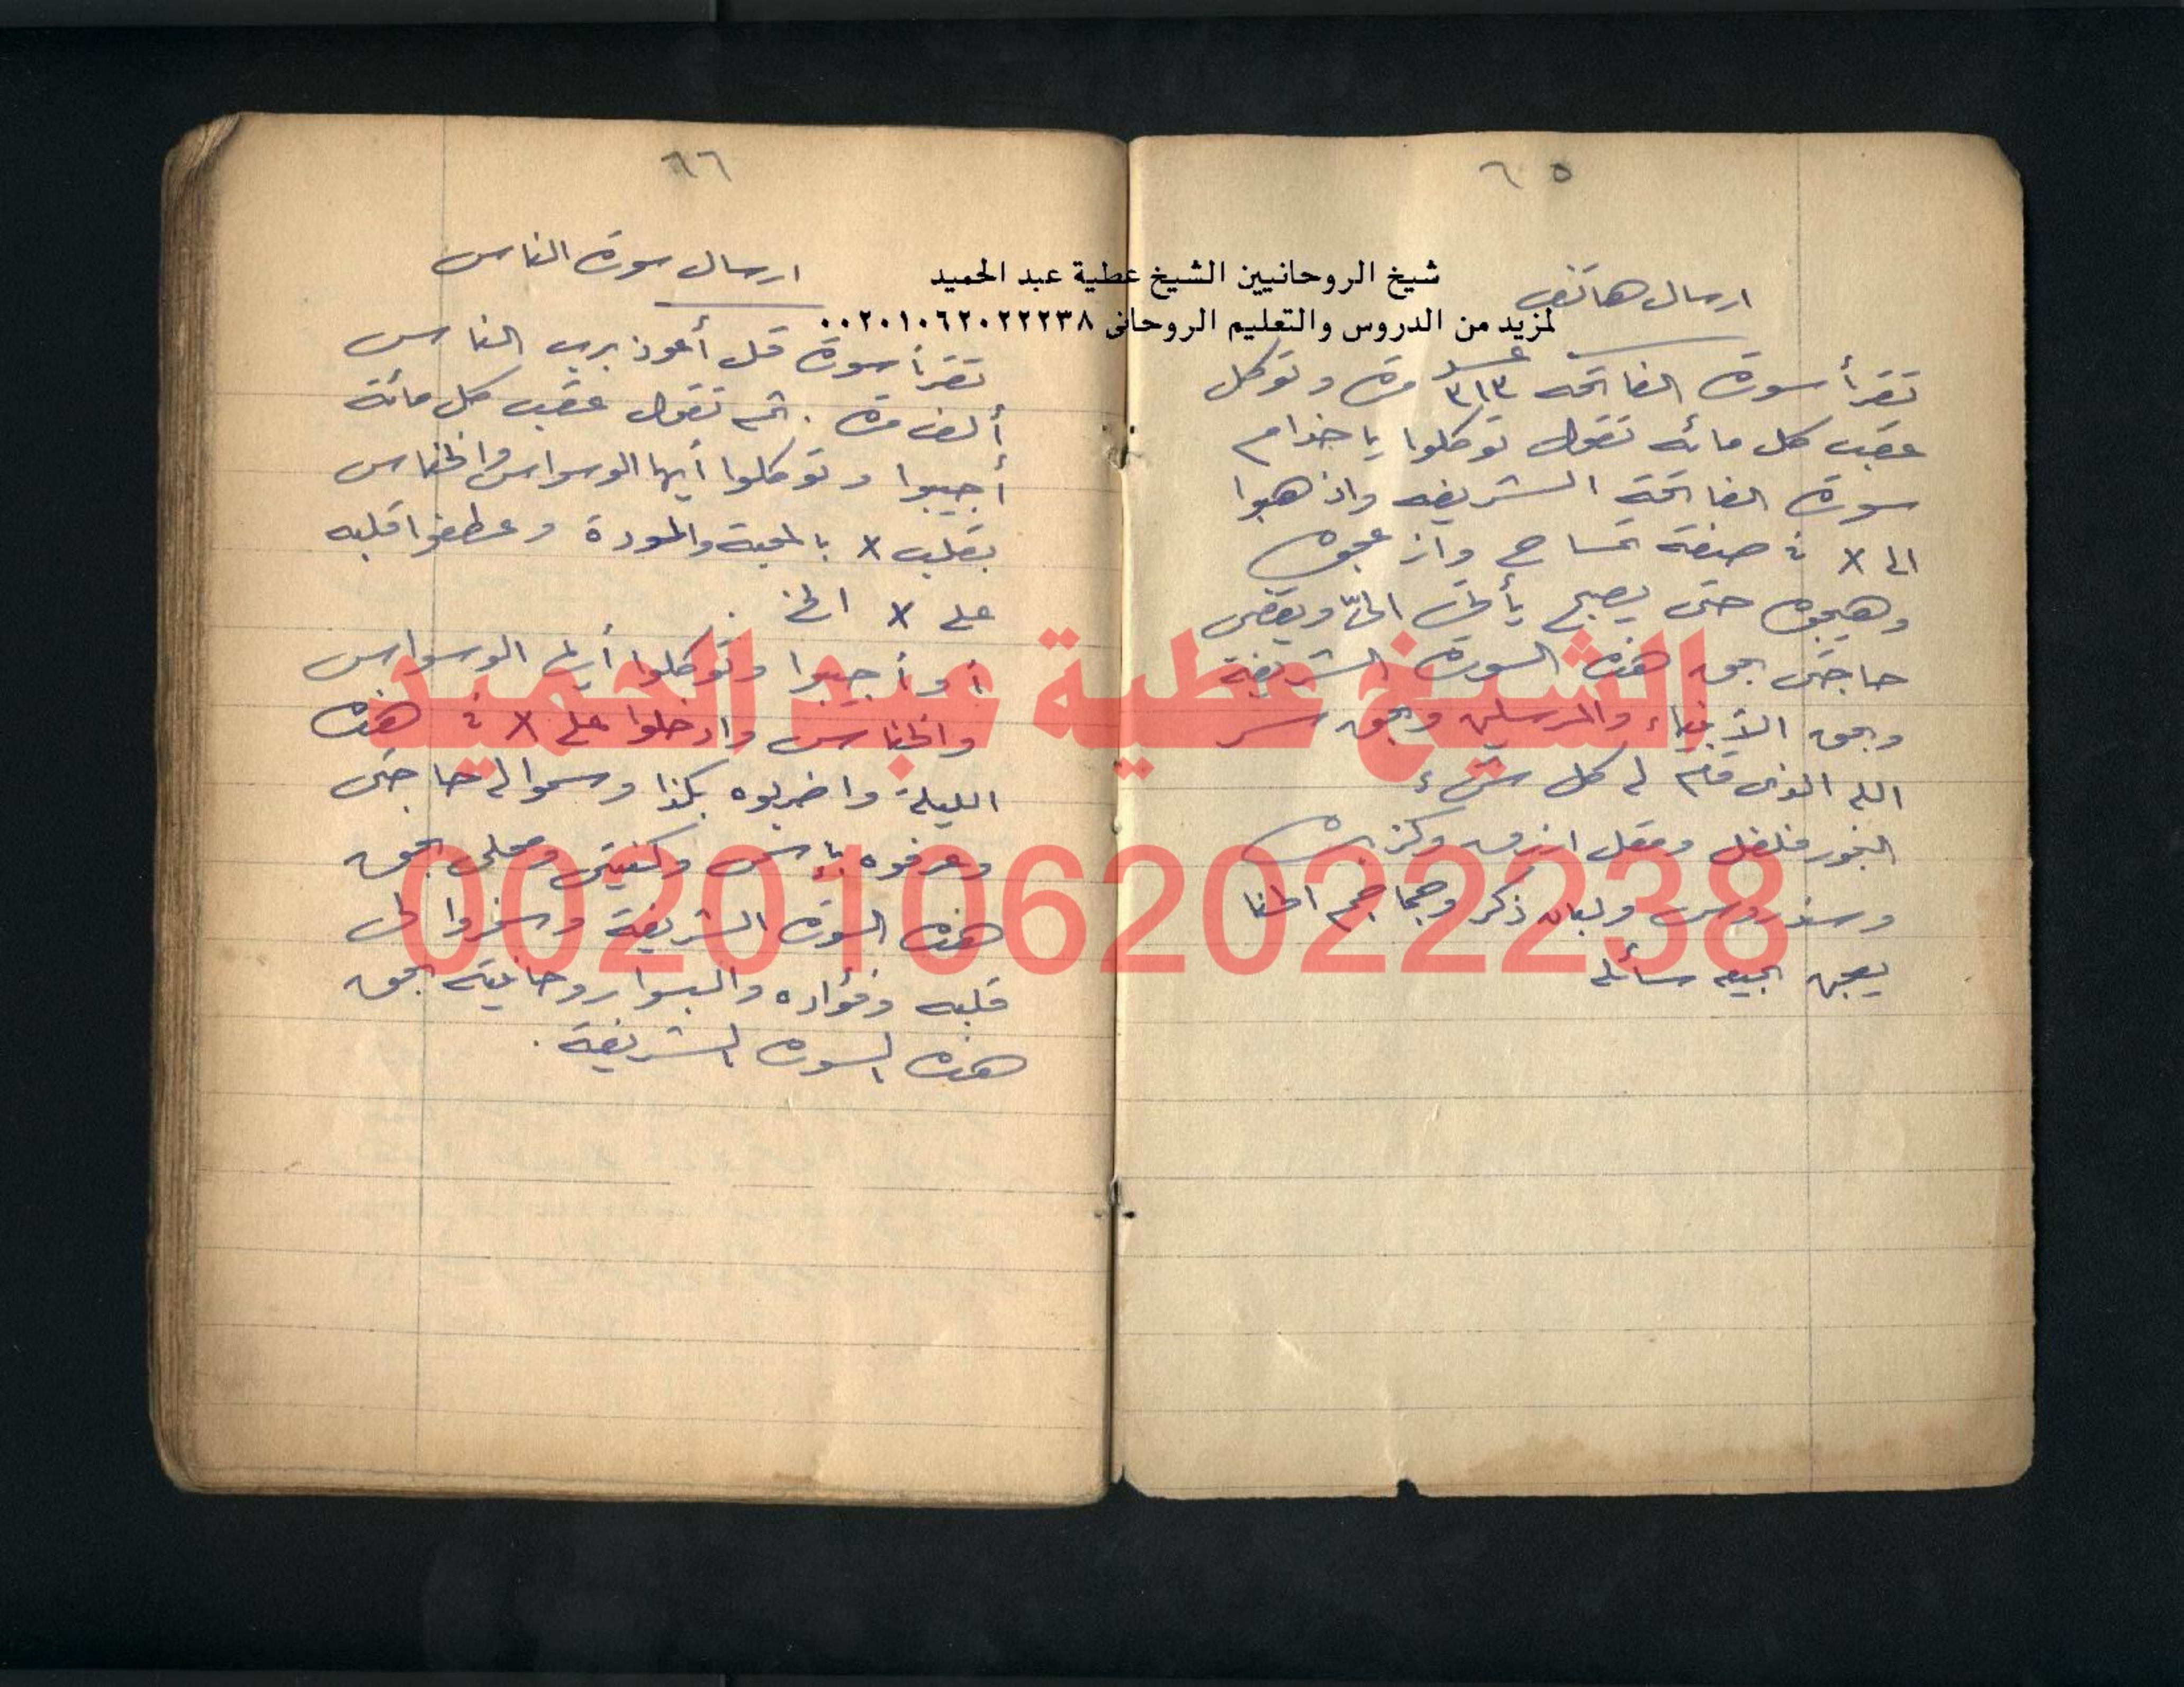 ٦٥
شيخ الروحانيين الشيخ عطية عبد الحميد
لمزيد من الدروس والتعليم الروحانى ٠٠٢٠١٠٦٢٠٢٢٢٣٨
ارسال هاتف
تقرأ سورة الفاتحه عدد ٣١٣ مرة وتوكل
عقب كل مائه تقول توكلوا يا خدام
سورة الفاتحة الشريفه واذهبوا
الى X فى صفة تمساح وازعجوه
وهيجوه حتى يصبح يأتى الىّ ويقضى
حاجتى بحق هذه السورة الشريفة
وبحق الأنبياء والمرسلين وبحق سر
الله الذى قام له كل شىء
البخور فلفل ومقل ازرق وكزبره
وسندروس ولبان ذكر
يعجن الجميع
٦٦
ارسال سورة الناس
تقرأ سورة قل أعوذ برب الناس
ألف مرة . ثم تقول عقب كل مائة
أجيبوا وتوكلوا أيها الوسواس والخناس
بقلب X بالمحبة والمودة وعطفوا قلبه
على X الخ .
أو أجيبوا وتوكلوا أيها الوسواس
والخناس وادخلوا على X فى هذه
الليلة واضربوه بكذا وسموا له حاجتى
وعرفوه بإسمى وكنيتى ومحلى بحق
هذه السورة الشريفة وسخروا لى
قلبه وفؤاده والبسوا روحانيته بحق
هذه السورة الشريفة .
الشيخ عطية عبد الحميد
00201062022238